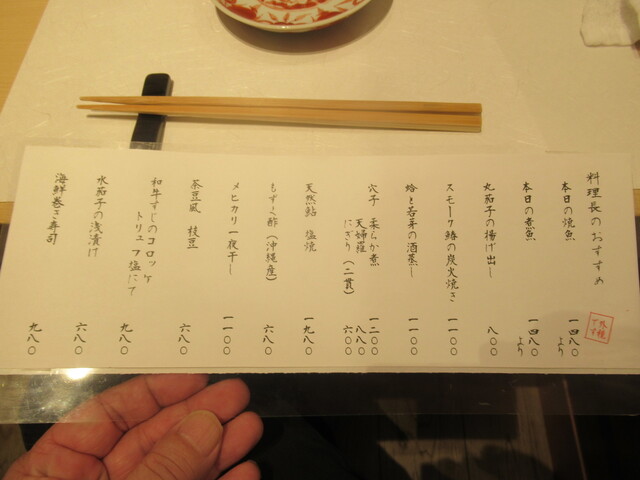 料理長のおすすめ
本日の焼魚 一四八〇より
本日の煮魚 一四八〇より
丸茄子の揚げ出し 八〇〇
スモーク鰆の炭火焼き 一一〇〇
蛤と若芽の酒蒸し 一一〇〇
穴子 柔らか煮 一二〇〇
天婦羅 八八〇
にぎり(二貫) 六〇〇
天然鮎 塩焼 一九八〇
もずく酢(沖縄産) 六八〇
メヒカリ一夜干し 一一〇〇
茶豆風 枝豆 六八〇
和牛すじのコロッケ
トリュフ塩にて 九八〇
水茄子の浅漬け 六八〇
海鮮巻き寿司 九八〇